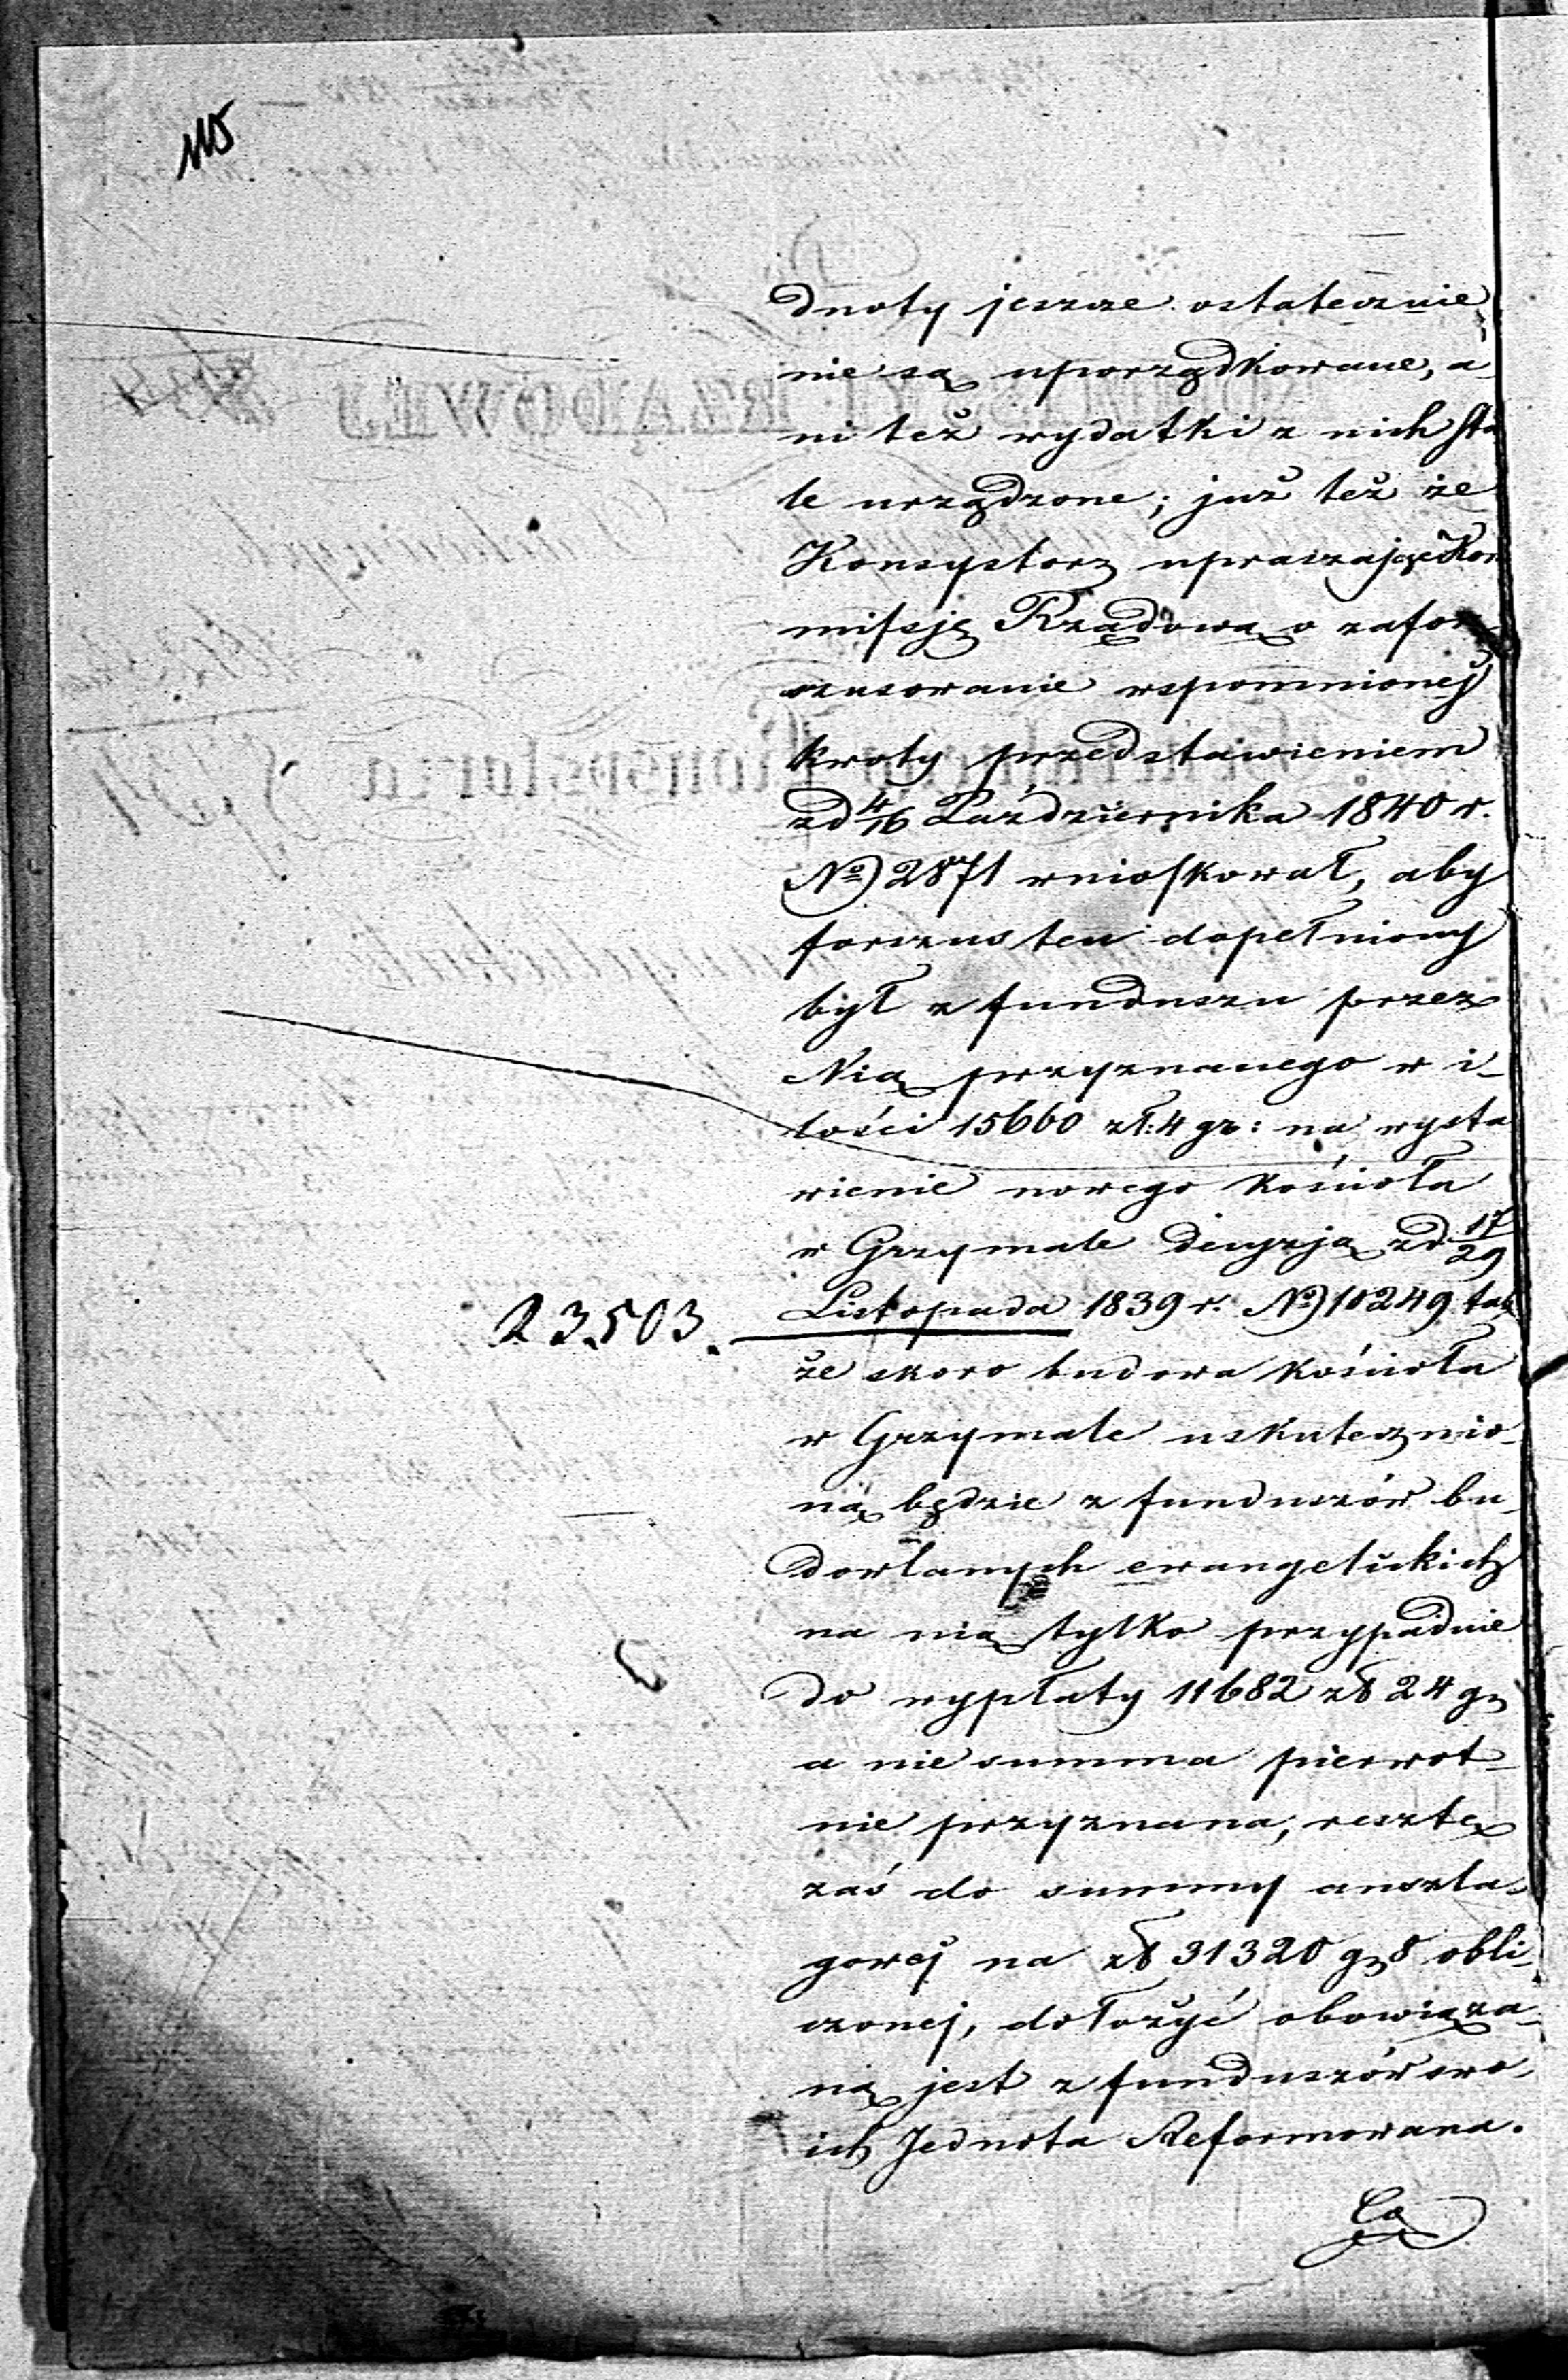 dnoty jeszcze ostatecznie
nie są uporządkowane, a-
ni też wydatki z nich sta
le urządzone; już też że
Konsystorz upraszając Kom
missję Rządową o zafor-
szusowanie wspomnionej
kwoty przedstawieniem
z d 4/16 Października 1840 r.
No 2871 wnioskował, aby
forszus ten dopełniony
był z funduszu przez
Nią przyznanego w i-
lości 15660 zł: 4 gr: na wysta
wienie nowego kościoła
w Grzymale decyzją z d 17/29
23.503. Listopada 1839 r. No 10249 tak
że skoro budowa kościoła
w Grzymale uskutecznio-
ną będzie z funduszów bu-
dowlanych ewangelickich
na nią tylko przypadnie
do wypłaty 11682 zł 24 gr
a nie summa pierwot-
nie przyznana, resztę
zaś do summy anszla-
gowej na zł 31320 gr 8 obli-
czonej, dołożyć obowiąza-
ną jest z funduszów swo-
ich Jednota Reformowana.
Co